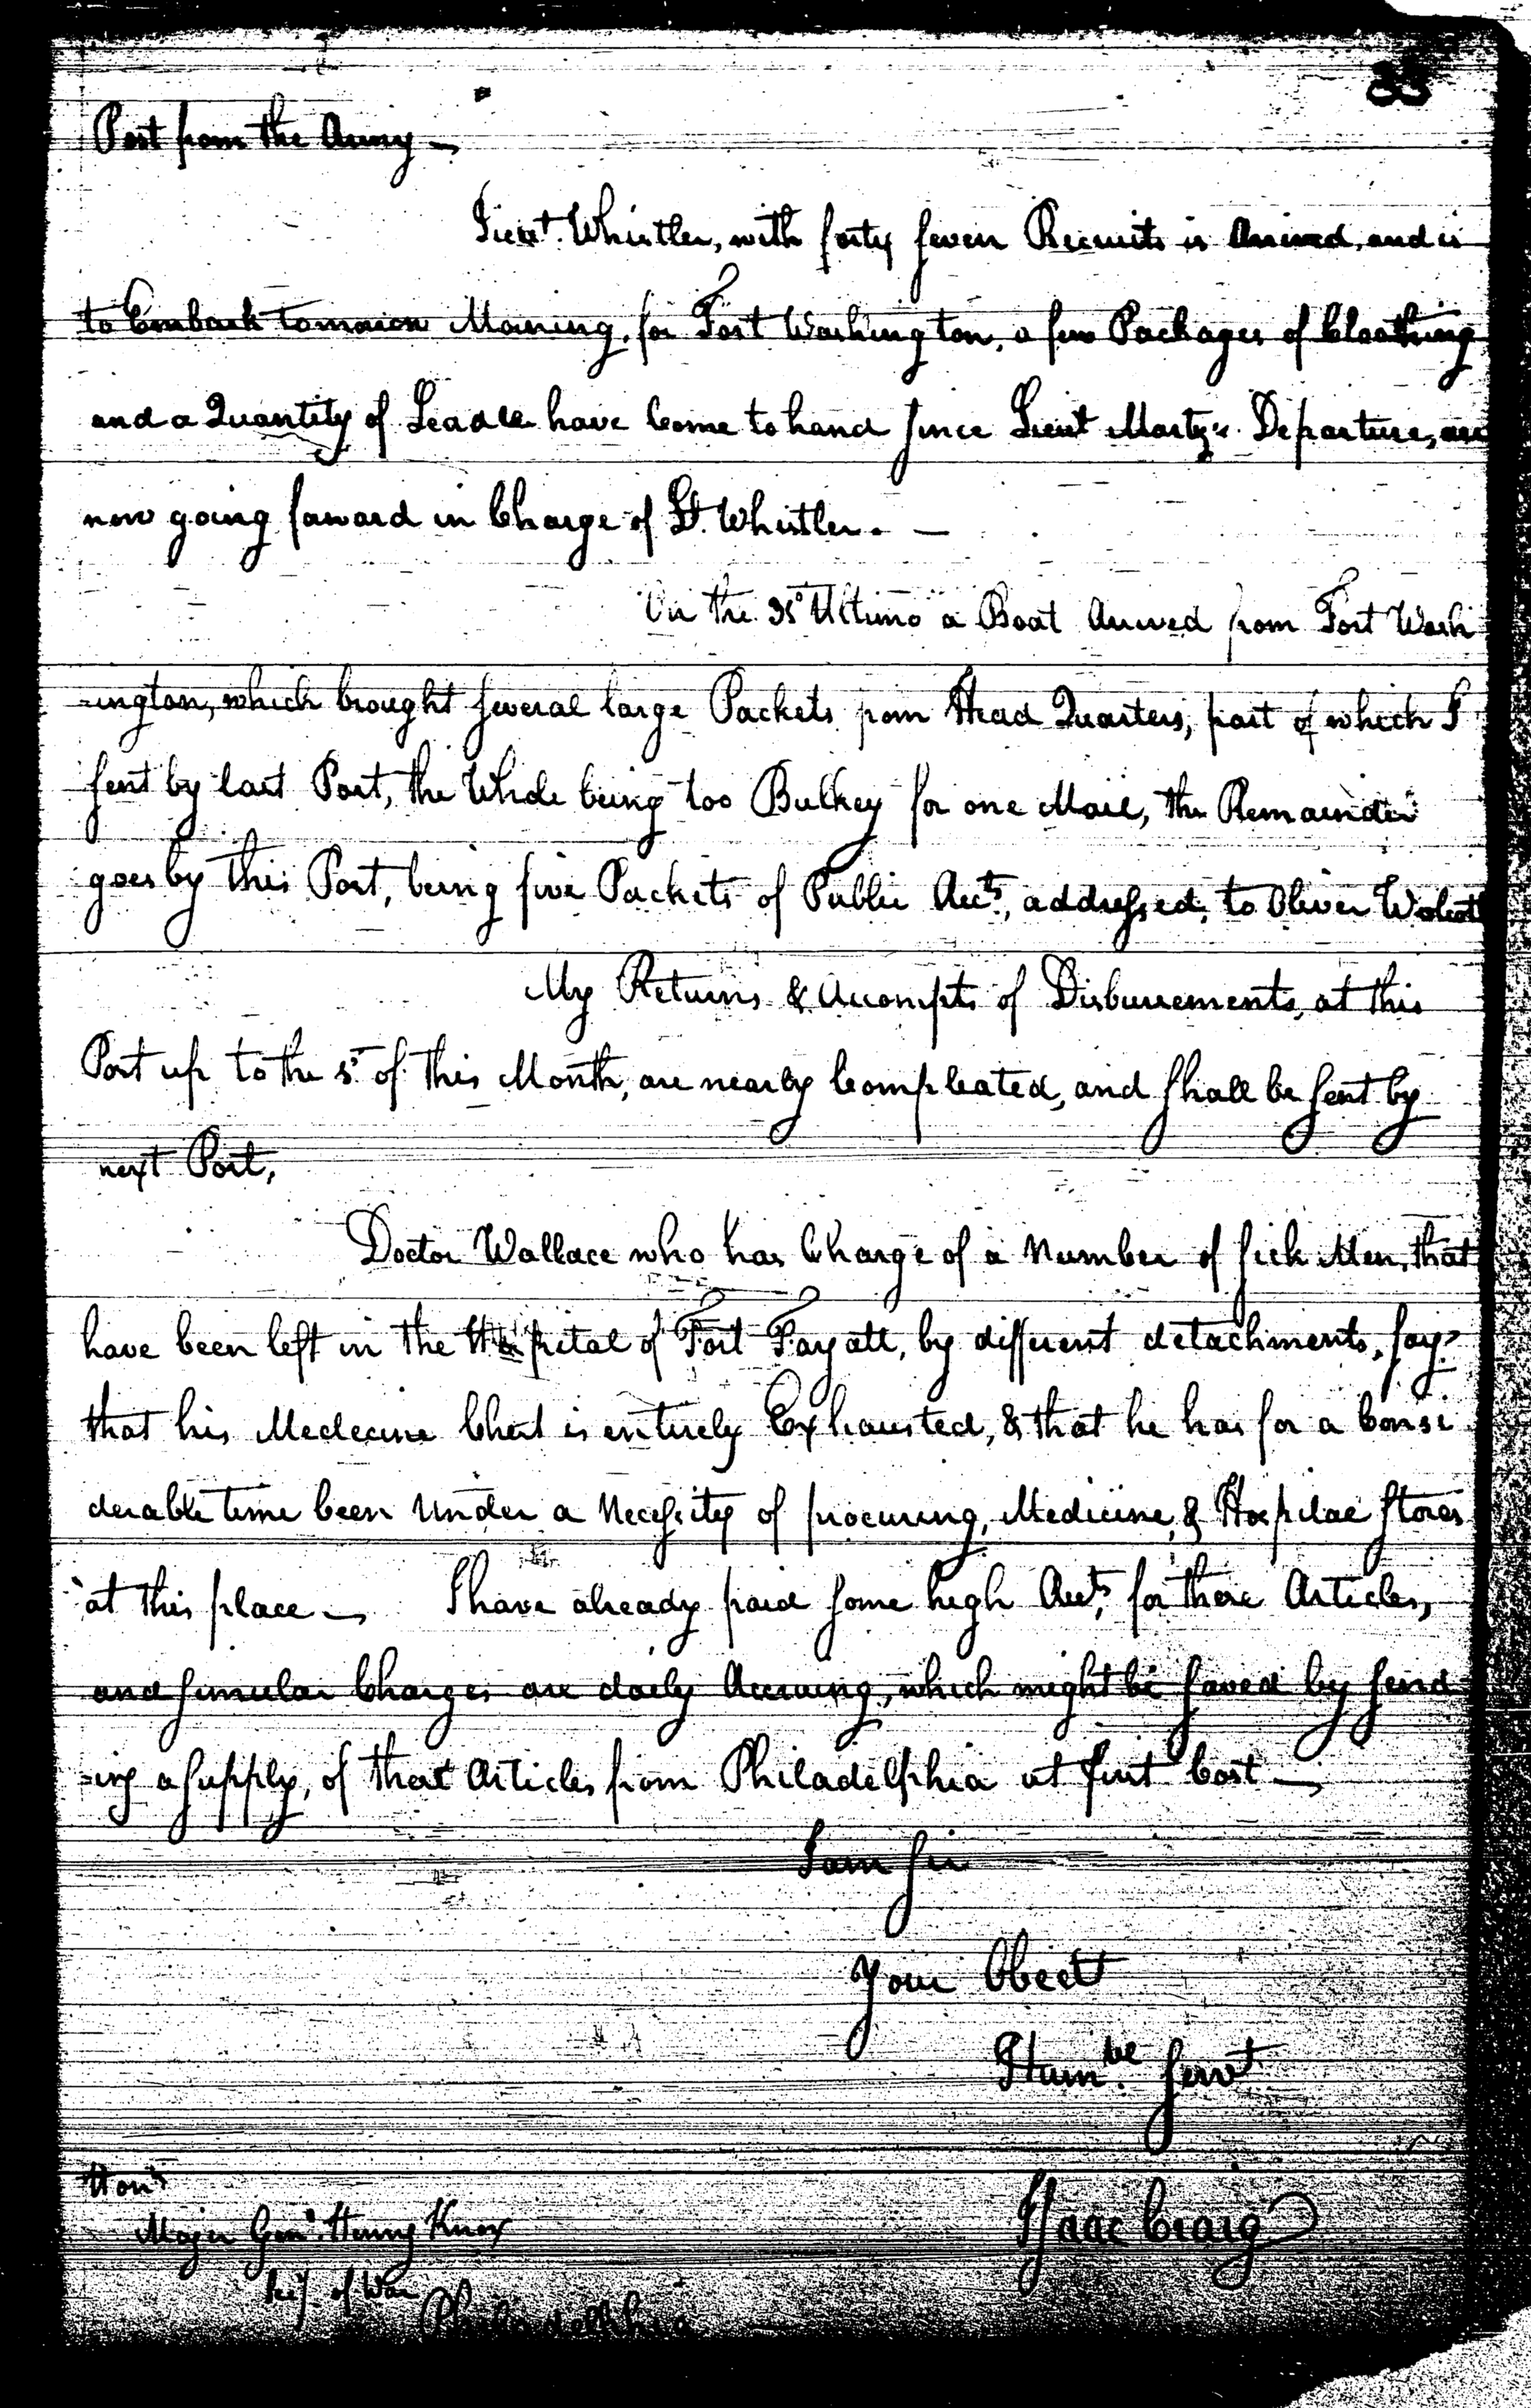 33
Post from the Army —
Lieut. Whistler, with forty seven Recruits is Arrived, and is
to Embark tomorrow Morning, for Fort Washington, a few Packages of Cloathing
and a Quantity of Leade have Come to hand since Lieut Marty's Departure, are
now going forward in Charge of Lt. Whistler. —
On the Ultimo a Boat Arrived from Fort Wash
-ington, which brought several large Packets from Head Quarters, part of which I
sent by last Post, the Whole being too Bulkey for one Mail, the Remainder
goes by this Post, being five Packets of Public Accts, addressed, to Oliver Wolcott
My Returns & Accompts of Disbursements, at this
Post up to the of this Month, are nearly Compleated, and shall be sent by
next Post,
Doctor Wallace who has Charge of a Number of sick Men, that
have been left in the Hospital of Fort Fayatt, by different detachments, says
that his Medecine Chest is entirely Exhausted, & that he has for a Consi
derable time been Under a Necessity of procuring, Medicine, & Hospital stores
at this place — I have already paid some high Accts, for these Articles,
and simular Charges are daily Accruing, which might be saved by send
-ing a supply, of these Articles from Philadelphia at first Cost —
I am sir
Your Obedt
Humble servt
Isaac Craig
Honble
Major Genl. Henry Knox
Secy. of War
Philadelphia